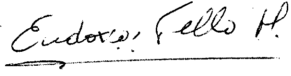 Eudoxio Tello H.